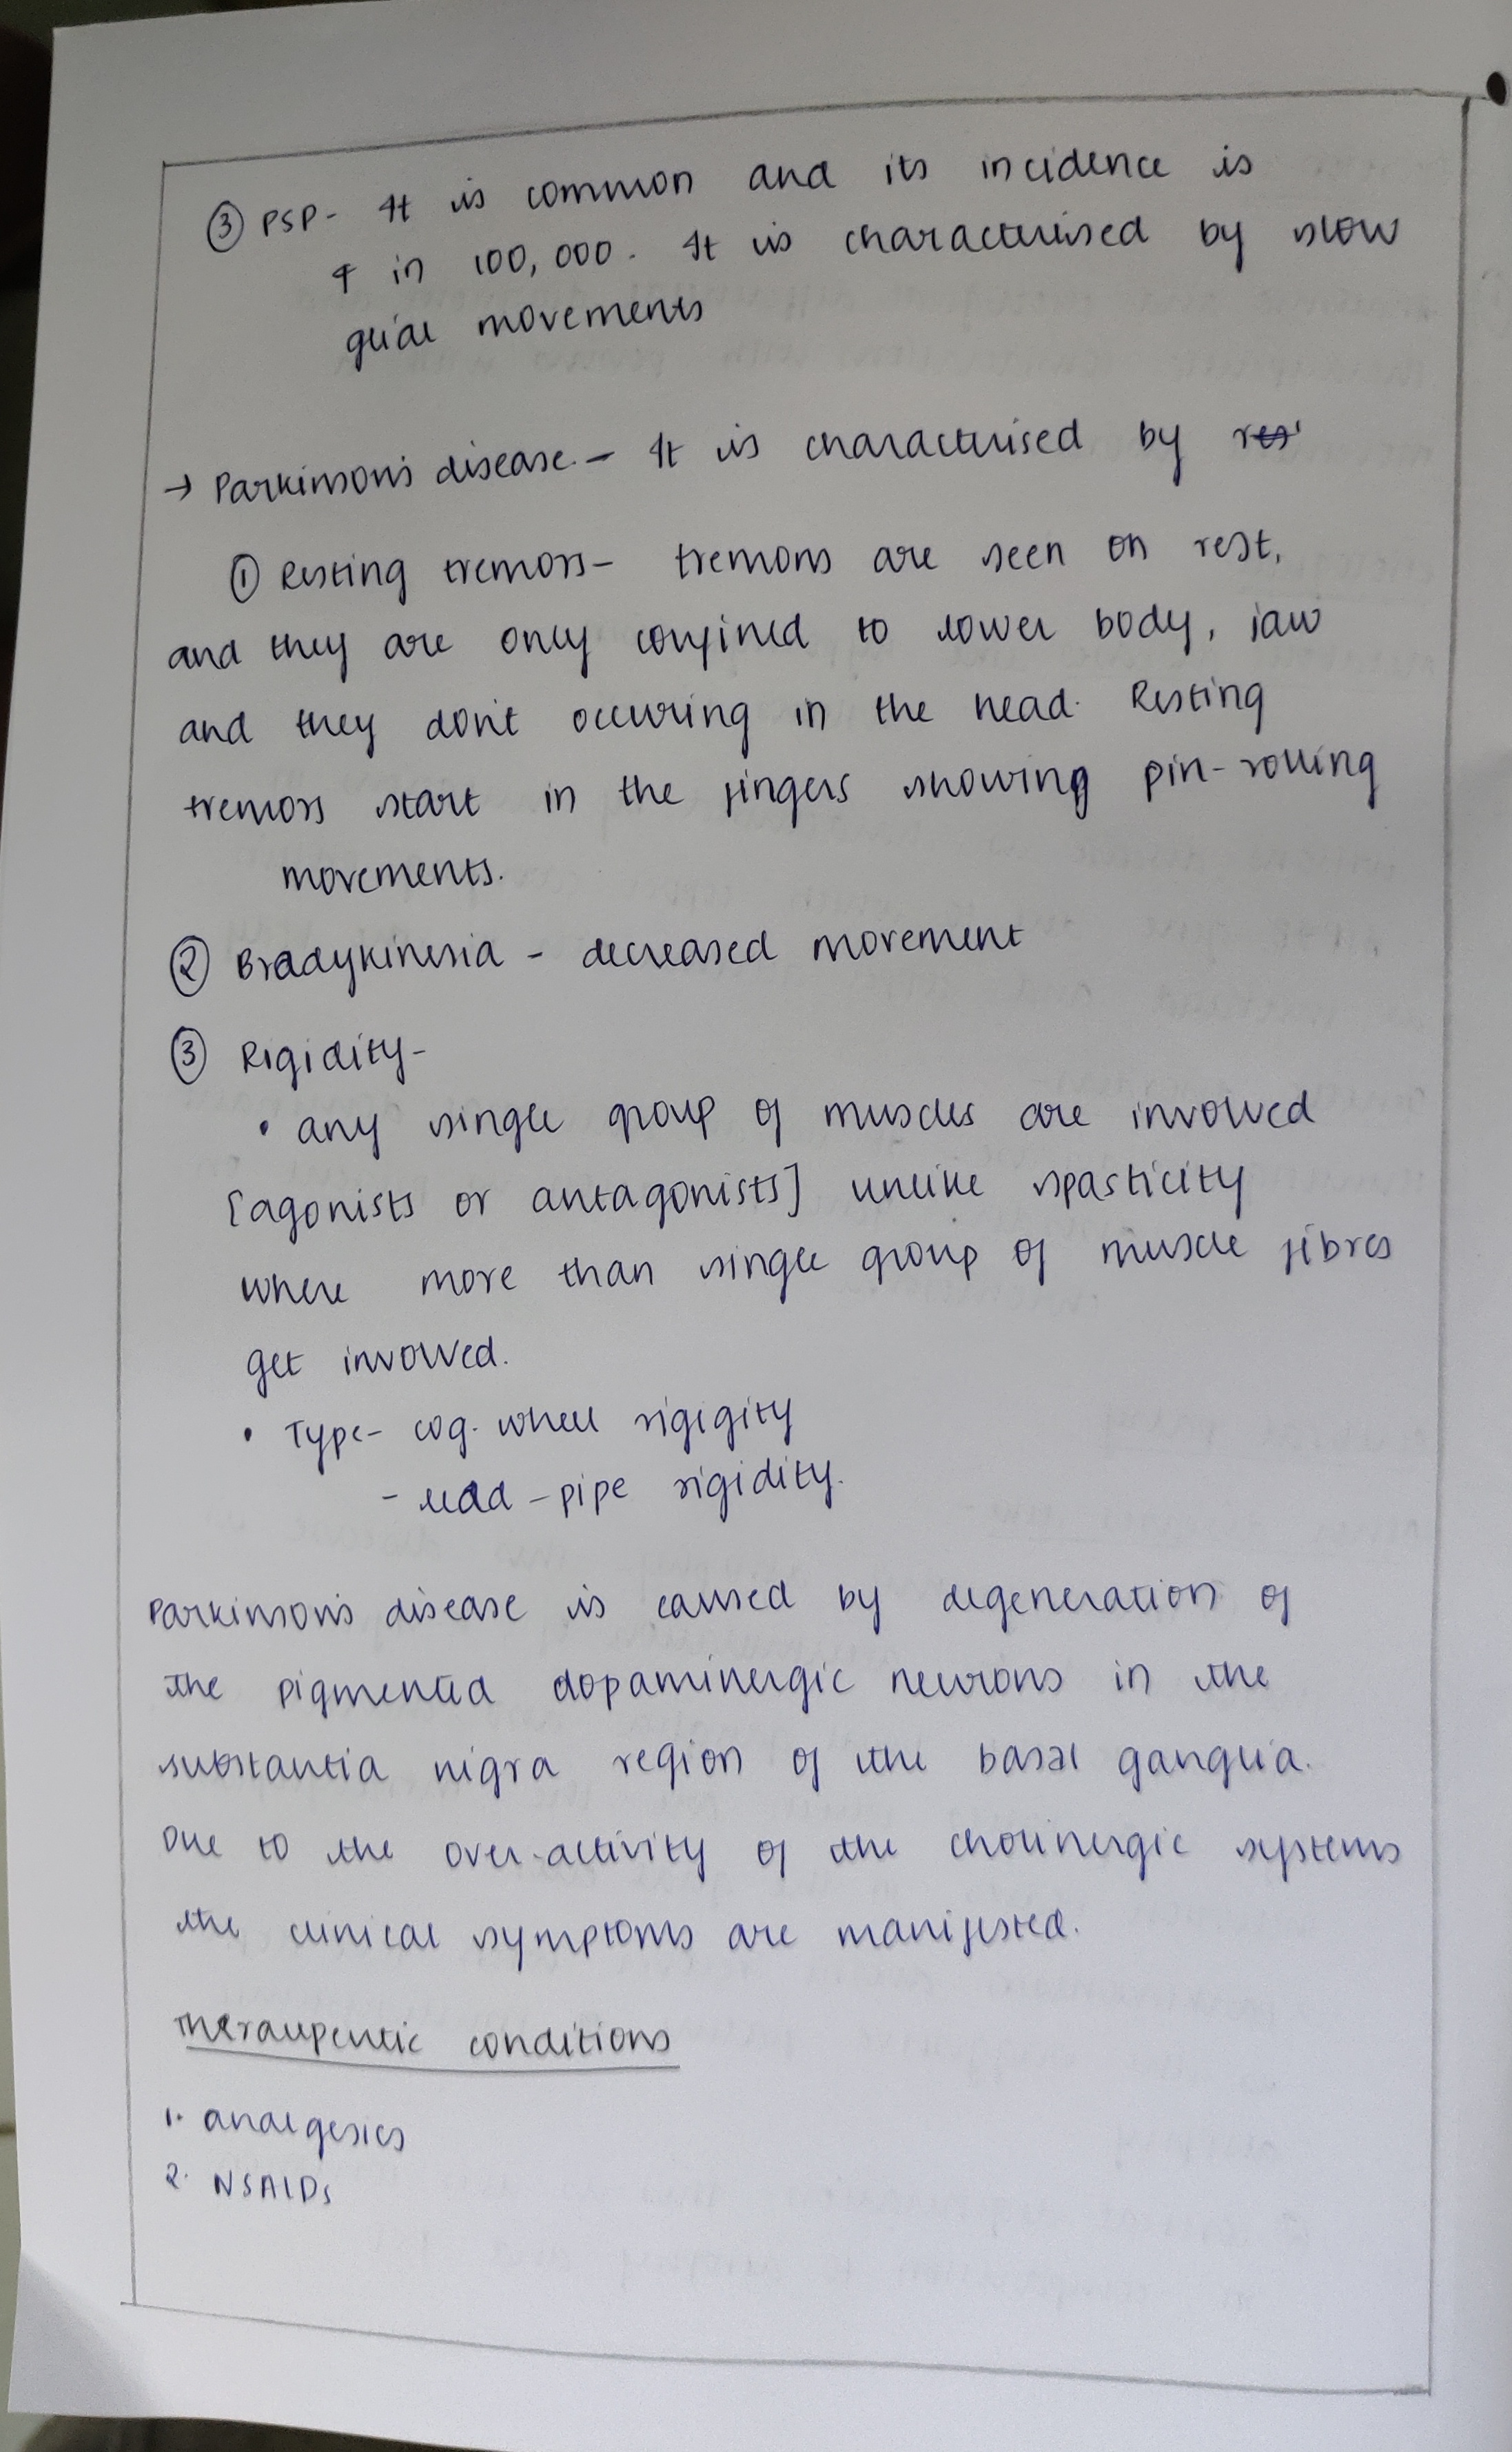 ③ PSP - It is common and its incidence is
4 in 100,000. It is characterised by slow
glide movements
→ Parkinson's disease - It is characterised by
① Resting tremors - tremors are seen on rest,
and they are only confined to lower body, jaw
and they don't occuring in the head. Resting
tremors start in the fingers showing pin-rolling
movements.
② Bradykinesia - decreased movement
③ Rigidity -
• any single group of muscles are involved
[agonists or antagonists] unlike spasticity
where more than single group of muscle fibres
get involved.
• Type - cog-wheel rigigity
- lead-pipe rigidity.
Parkinson's disease is caused by degeneration of
the pigmented dopaminergic neurons in the
substantia nigra region of the basal ganglia.
Due to the over-activity of the cholinergic systems
the clinical symptoms are manifested.
Theraupeutic conditions
1. analgesics
2. NSAIDs